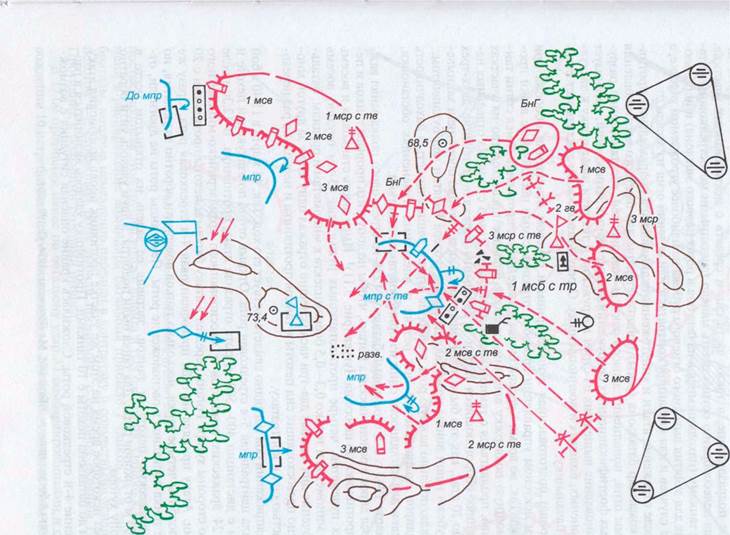 До мпр
1 мсв
1 мср с тв
2 мсв
мпр
3 мсв
БнГ
68,5
БнГ
1 мсв
2 гв
3 мср
3 мср с тв
2 мсв
1 мсб с тр
мпр с тв
73,4
разв.
2 мсв с тв
мпр
3 мсв
1 мсв
2 мср с тв
3 мсв
мпр